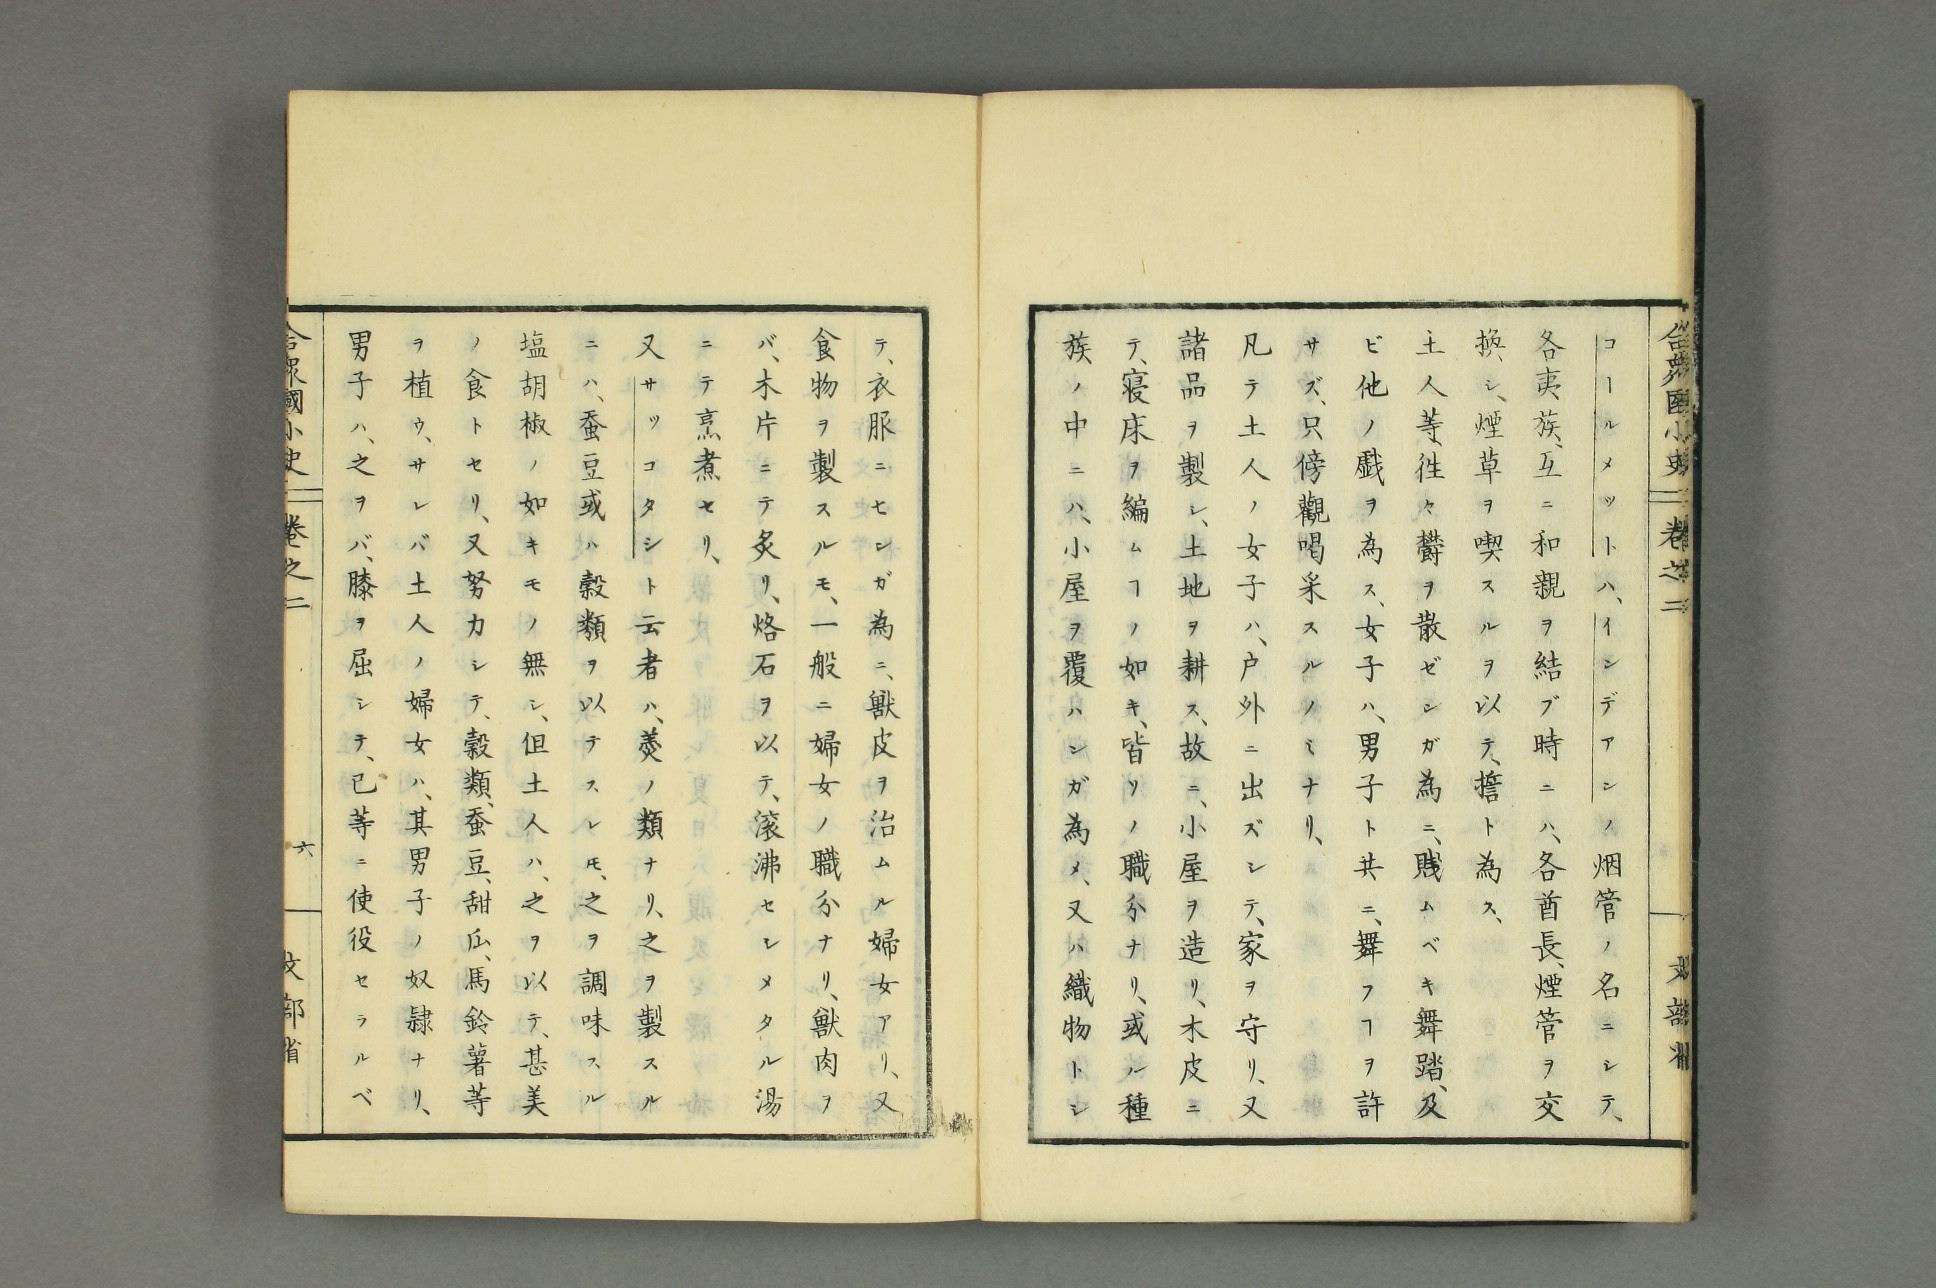 合衆國小史 巻之二
文部省
コールメットハ、インデアンノ烟管ノ名ニシテ、
各夷族、互ニ和親ヲ結ブ時ニハ、各酋長、煙管ヲ交
換シ、煙草ヲ喫スルヲ以テ、擔ト為ス、
土人等、徃々鬱ヲ散ゼンガ為ニ、賎ムベキ舞踏、及
ビ他ノ戯ヲ為ス、女子ハ、男子ト共ニ、舞フヿヲ許
サズ、只傍觀喝采スルノミナリ、
凡テ土人ノ女子ハ、户外ニ出ズシテ、家ヲ守リ、又
諸品ヲ製シ、土地ヲ耕ス、故ニ、小屋ヲ造リ、木皮ニ
テ、寝床ヲ編ムヿノ如キ、皆ソノ職分ナリ、或ル種
族ノ中ニハ、小屋ヲ覆ハンガ為メ、又ハ織物トシ
テ、衣服ニセンガ為ニ、獸皮ヲ治ムル婦女アリ、又
食物ヲ製スルモ、一般ニ婦女ノ職分ナリ、獸肉ヲ
バ、木片ニテ炙リ、烙石ヲ以テ、滾沸セシメタル湯
ニテ烹煮セリ、
又サッコタシト云者ハ、羮ノ類ナリ、之ヲ製スル
ニハ、蚕豆或ハ穀類ヲ以テスレ𪜈、之ヲ調味スル
塩胡椒ノ如キモノ無シ、但土人ハ、之ヲ以テ、甚美
ノ食トセリ、又努力シテ、穀類、蚕豆、甜瓜、馬鈴薯等
ヲ植ウ、サレバ土人ノ婦女ハ、其男子ノ奴隷ナリ、
男子ハ、之ヲバ、膝ヲ屈シテ、己等ニ使役セラルベ
合衆國小史 巻之二
六
文部省